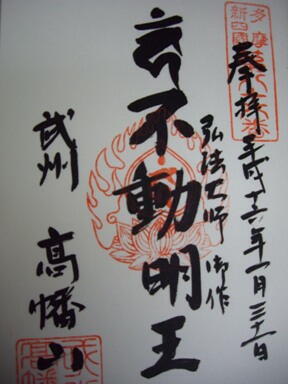 新四国
奉拝 平成十六年一月三十一日
弘法大師 御作
不動明王
武州 高幡山